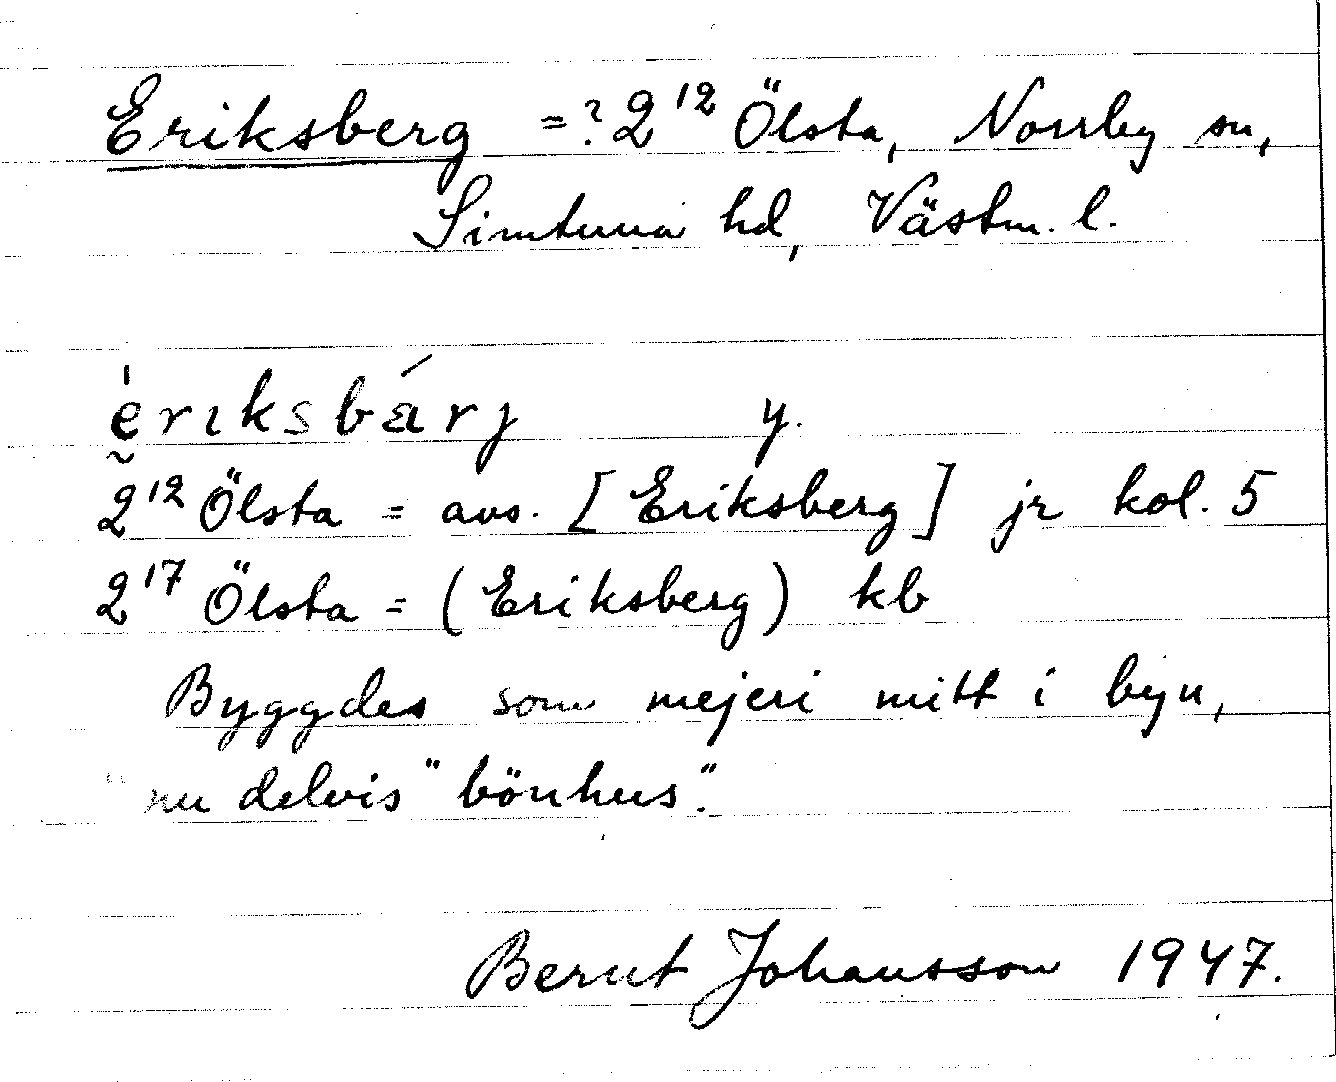 Eriksberg =? 2¹² Ölsta, Norrby sn,
Simtuna hd, Västm. l.
ėrıksbárj y.
2¹² Ölsta = avs. [Eriksberg] jr kol. 5
2¹⁷ Ölsta = (Eriksberg) kb
Byggdes som mejeri mitt i byn,
nu delvis "bönhus".
Bernt Johansson 1947.